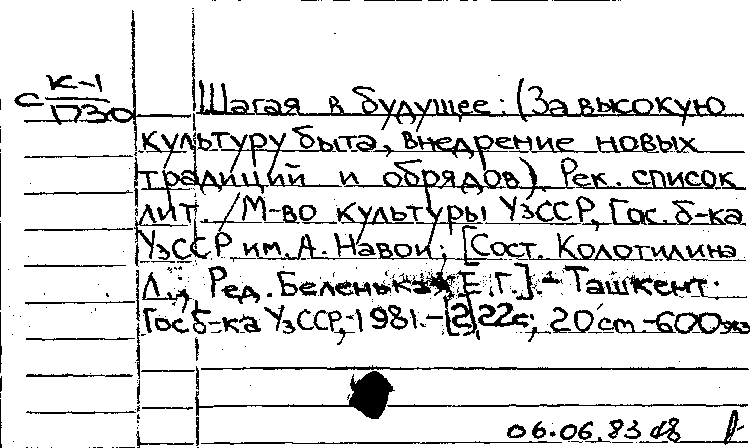 с К-1
1730
Шагая в будущее: (За высокую
культуру быта, внедрение новых
традиций и обрядов). Рек. список
лит. / М-во культуры УзССР, Гос. б-ка
УзССР им. А. Навои; [Сост. Колотилина
Л.; Ред. Беленькая Е.Г.]. - Ташкент:
Гос б-ка УзССР, - 1981. - [2], 22 с; 20 см - 600 экз
06.06.83